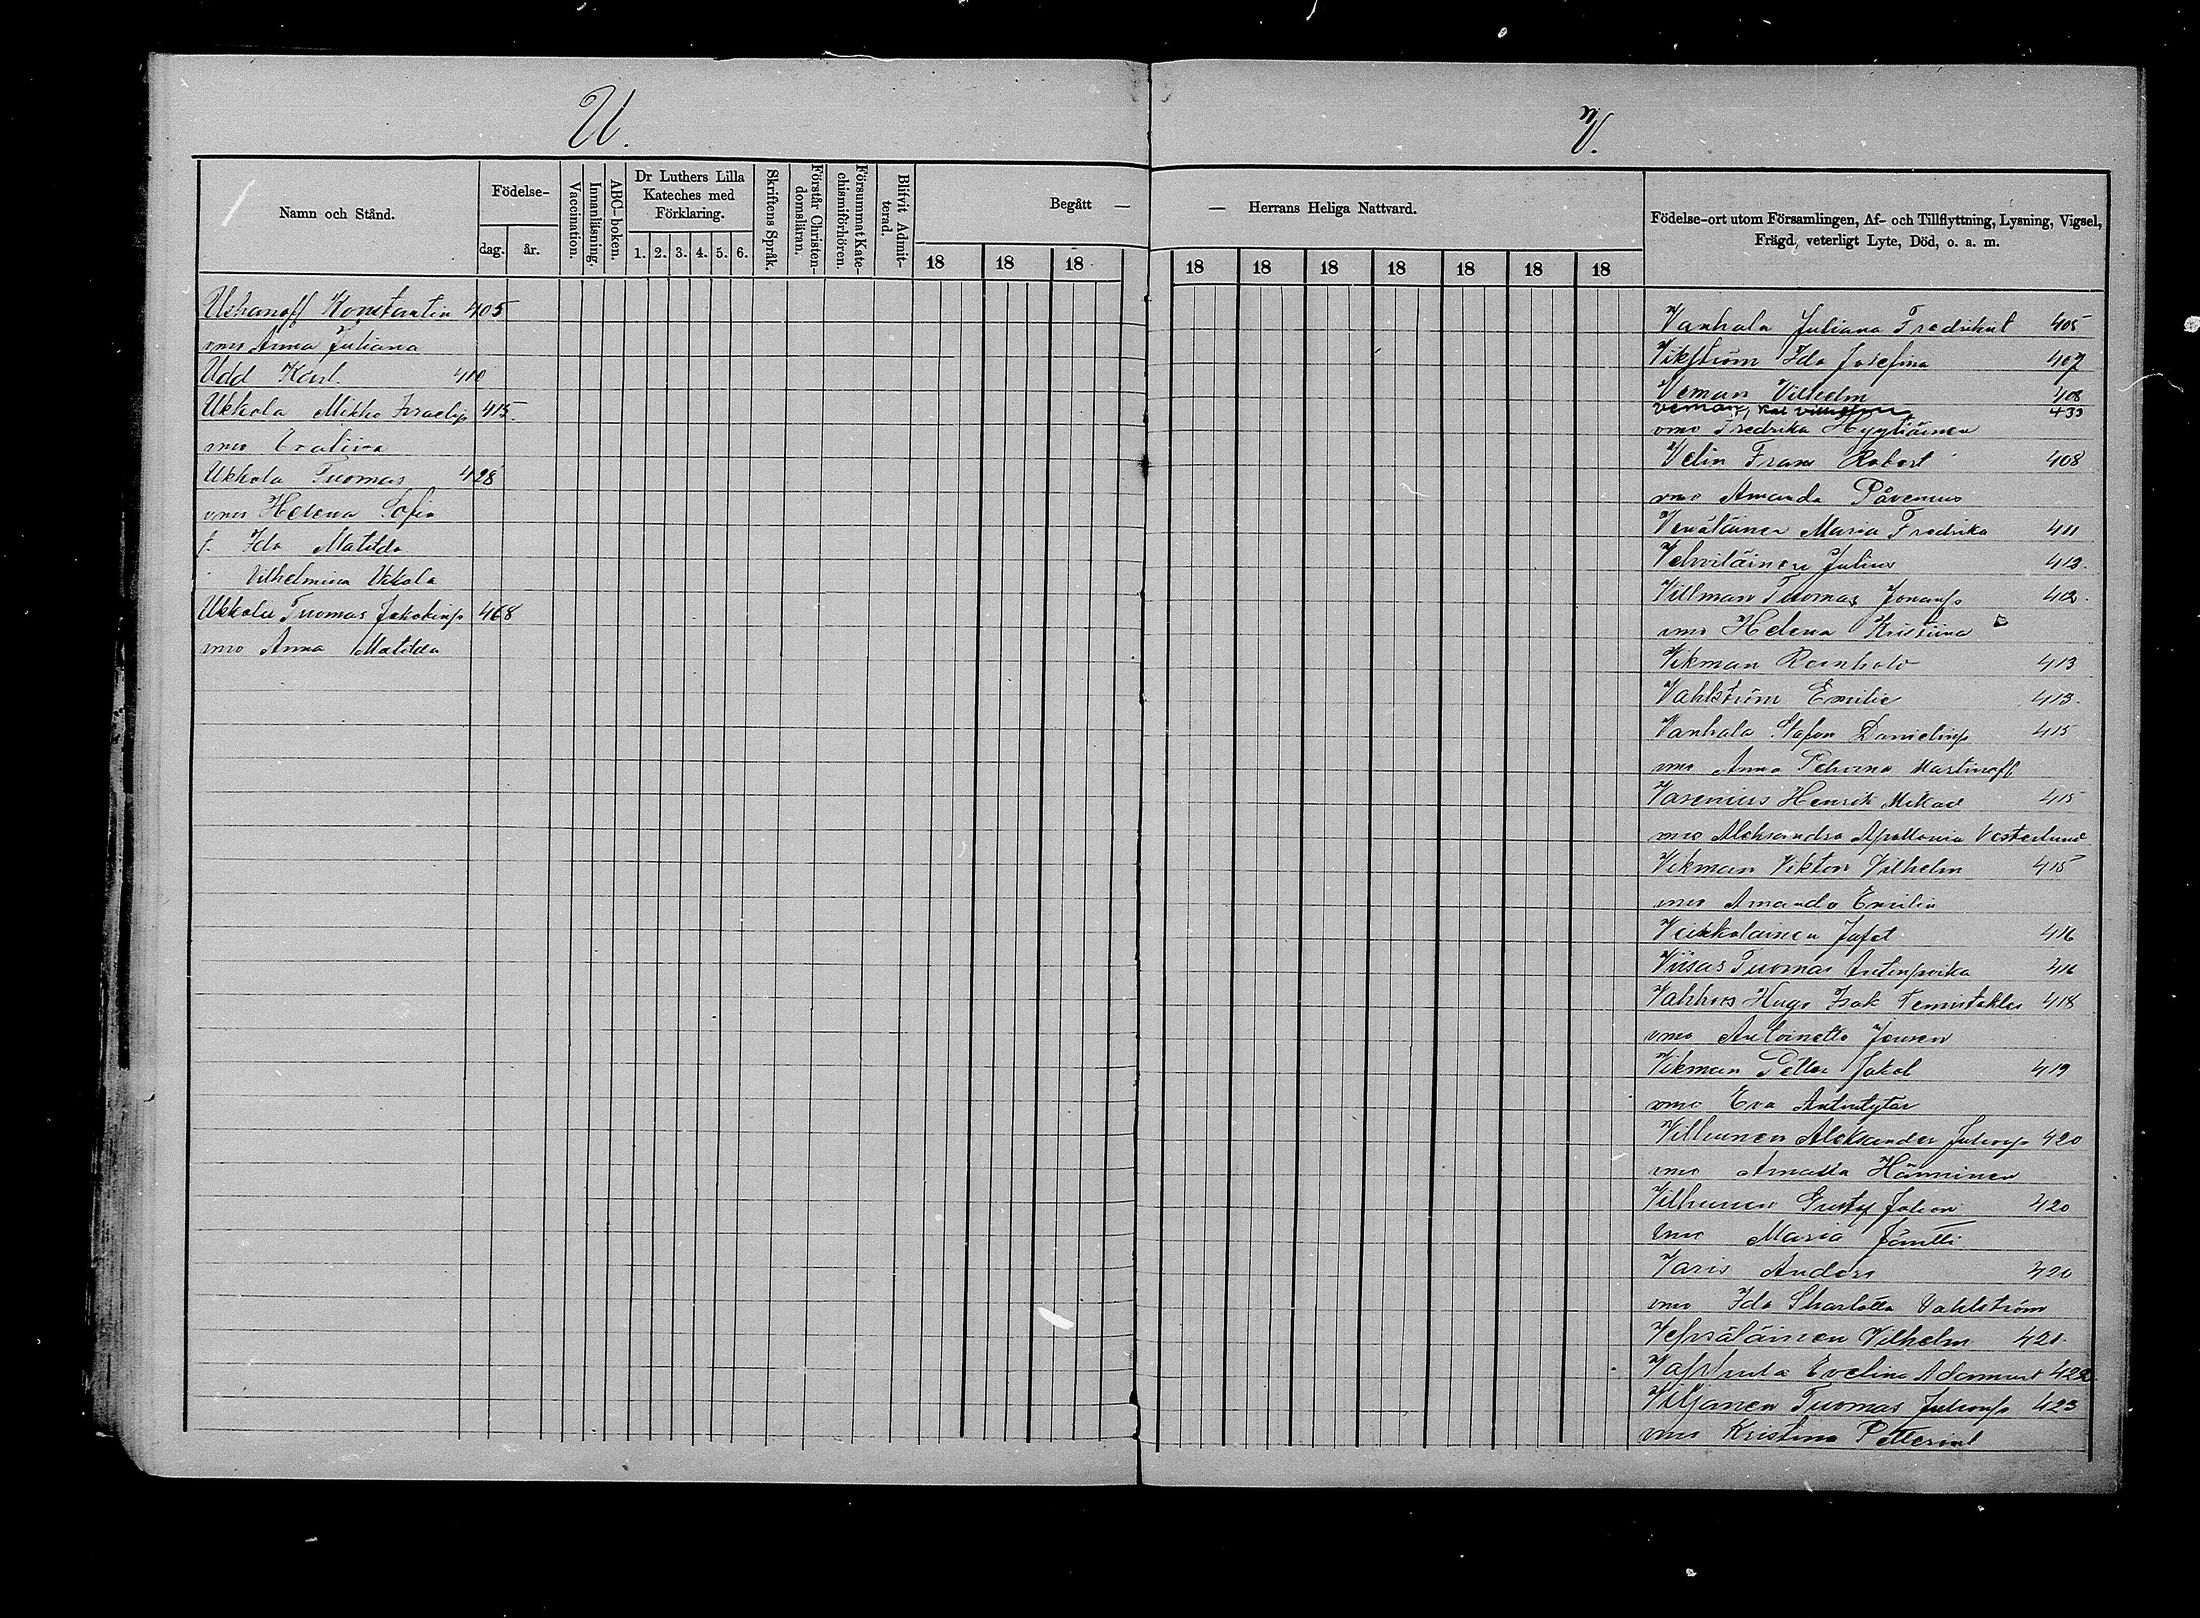 U.
Namn och Stånd.
Födelse-
dag.
år.
Vaccination.
Innanläsning.
ABC-boken.
Dr Luthers Lilla
Kateches med
Förklaring.
1. 2. 3. 4. 5. 6.
Skriftens Språk.
Förstår Christen-
domsläran.
Försummat Kate-
chismiförhören.
Blifvit Admit-
terad.
Begått —
18 18 18
Ushanoff Konstantin 405
vmo Anna Juliana
Udd Karl 410
Ukkola Mikko Israelinp 415
vmo Evaliina
Ukkola Tuomas 428
vmo Helena Sofia
f. Ida Matilda
Vilhelmina Ukkola
Ukkola Tuomas Jakobinp 468
vmo Anna Matilda
V.
— Herrans Heliga Nattvard.
18 18 18 18 18 18 18
Födelse-ort utom Församlingen, Af- och Tillflyttning, Lysning, Vigsel,
Frägd, veterligt Lyte, Död, o. a. m.
Vanhala Juliana Fredrikint 405
Vikström Ida Josefina 407
Veman Vilhelm 408
Veman, Kal Vilhelm 433
vmo Fredrika Hyytiäinen
Velin Frans Robert 408
vmo Amanda Påvenius
Venäläinen Maria Fredrika 411
Vehviläinen Julius 412
Villman Tuomas Jonanp 412
vmo Helena Kristiina
Vikman Reinhold 413
Vahlström Emilia 413
Vanhala Stafon Danielinp 415
vmo Anna Petronia Martinoff
Varenius Henrik Mikael 415
vmo Aleksandra Apollonia Vesterlund
Vikman Viktor Vilhelm 415
vmo Amanda Emilia
Veikkolainen Jafet 416
Viisas Tuomas Antinpoika 416
Vahlfors Hugo Isak Temistokles 418
vmo Antoinette Jensen
Vikman Petter Jakob 419
vmo Eva Antintytar
Vilhunen Aleksander Juhonp 420
vmo Amalia Hänninen
Vilhunen Gustaf Johan 420
vmo Maria Jäntti
Varis Anders 420
vmo Ida Sharlotta Vahlström
Vepsäläinen Vilhelm 421
Evelina Adamint 422
Viljanen Tuomas Juhonp 423
vmo Kristina Petterint